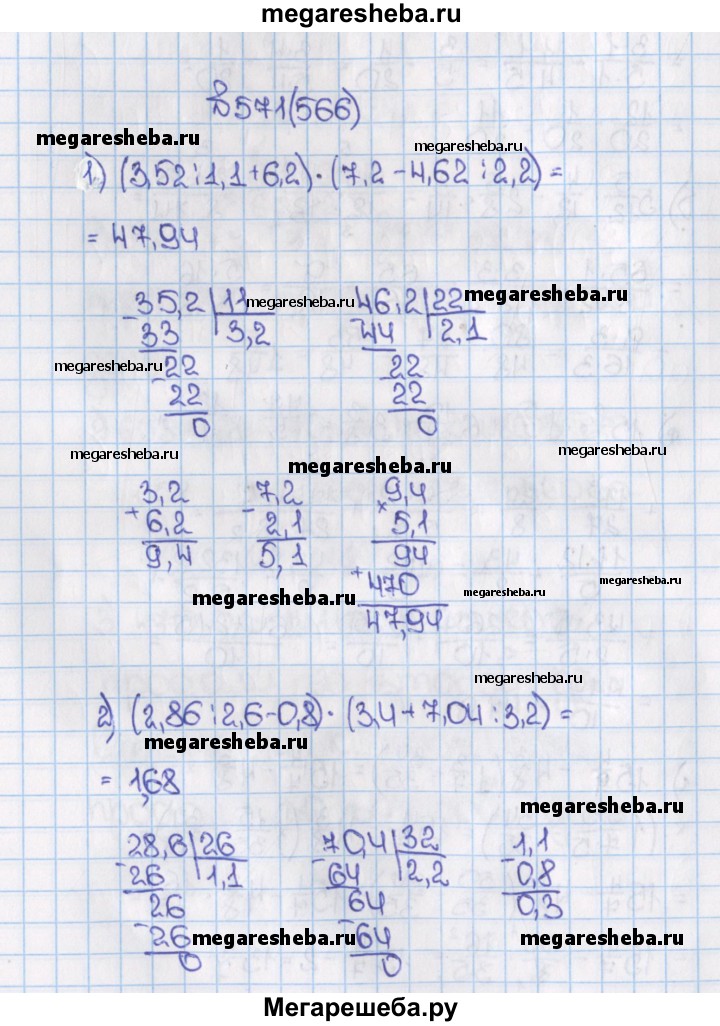 megaresheba.ru
№571(566)
megaresheba.ru
megaresheba.ru
1) (3,52:1,1+6,2)·(7,2-4,62:2,2)=
= 47,94
35,2|11 megaresheba.ru 46,2|22 megaresheba.ru
- 33 3,2 - 44 2,1
megaresheba.ru - 22 22
22 22
0 0
megaresheba.ru megaresheba.ru
megaresheba.ru
3,2 - 7,2 × 9,4
+ 6,2 2,1 5,1
9,4 5,1 94
megaresheba.ru + 470 megaresheba.ru megaresheba.ru
47,94
megaresheba.ru
2) (2,86:2,6-0,8)·(3,4+7,04:3,2)=
megaresheba.ru
= 1,68
megaresheba.ru
28,6|26 70,4|32 1,1
- 26 1,1 - 64 2,2 - 0,8
26 64 0,3
- 26 megaresheba.ru - 64 megaresheba.ru
0 0
Мегарешеба.ру